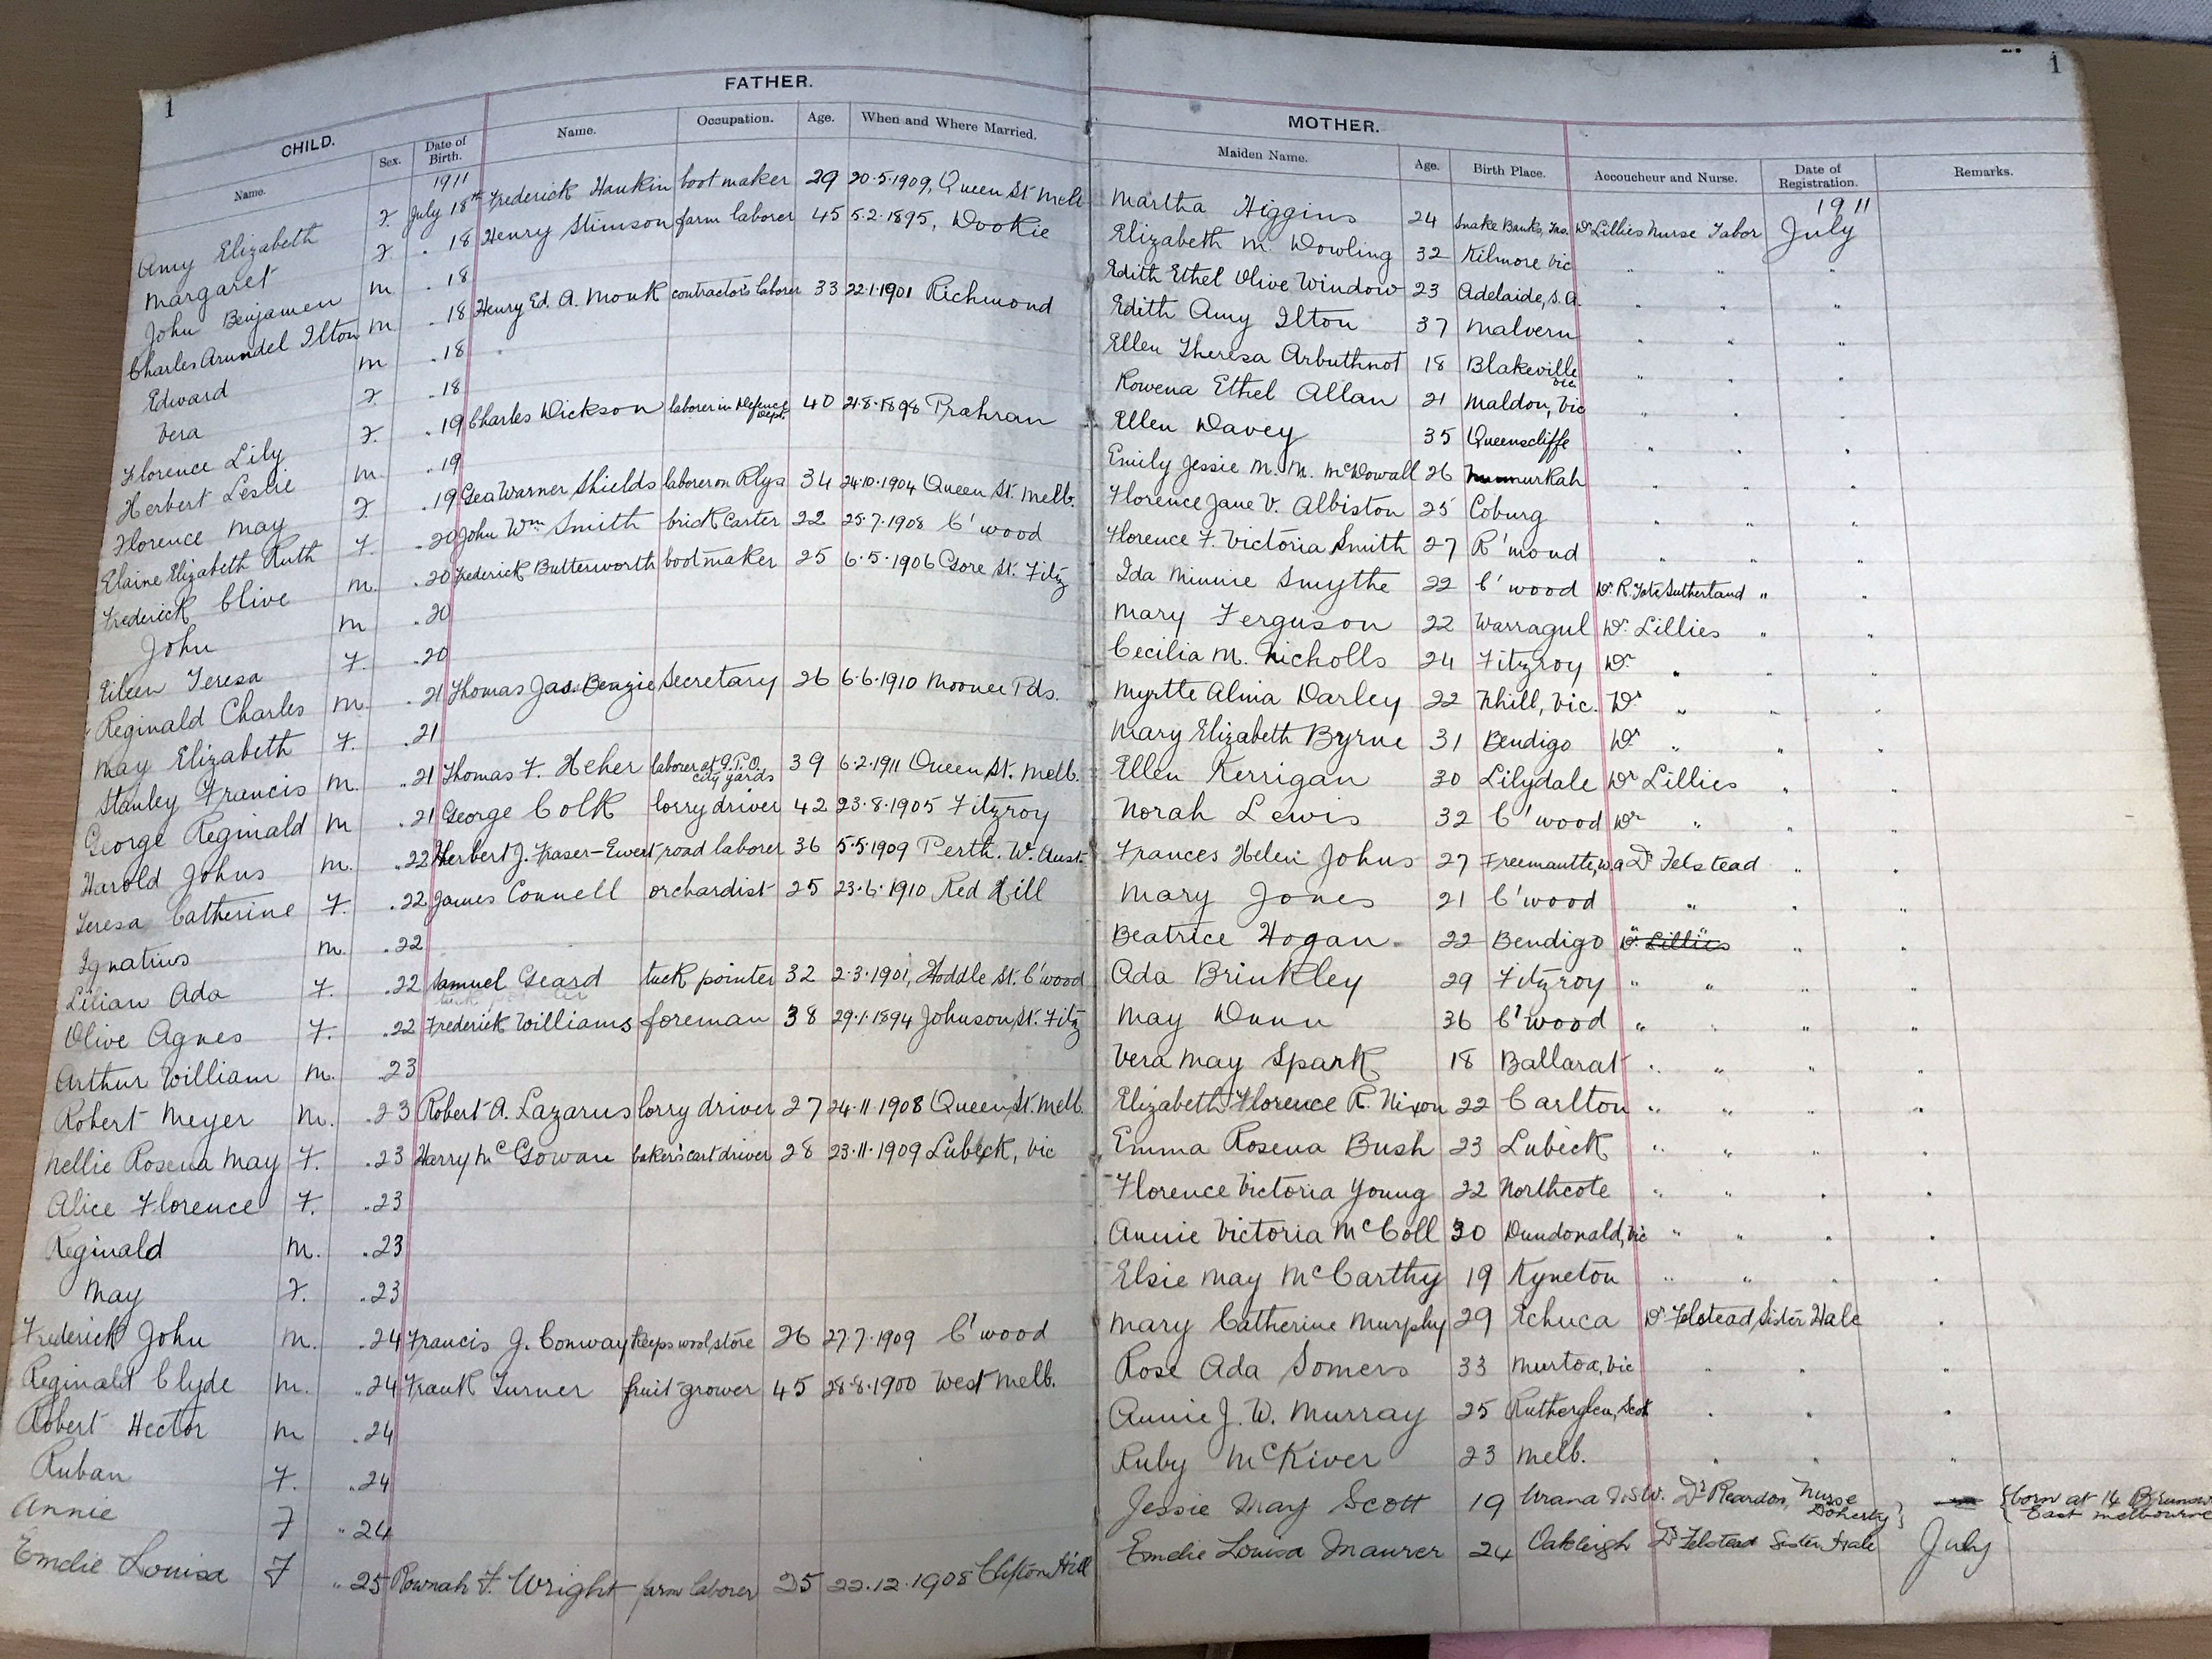 1
1
FATHER.
MOTHER.
CHILD.
Name. Sex. Date of Birth. Name. Occupation. Age. When and Where Married. Maiden Name. Age. Birth Place. Accoucheur and Nurse. Date of Registration. Remarks.
1911 1911
Amy Elizabeth F. July 18th Frederick Hankin bootmaker 29 20.5.1909, Queen St Melb Martha Higgins 24 Snake Banks, Tas. Dr Lillies Nurse Tabor July
Margaret F. " 18 Henry Stimson farm laborer 45 5.2.1895, Dookie Elizabeth M. Dowling 32 Kilmore Vic " " "
John Benjamen M . 18 Edith Ethel Olive Window 23 Adelaide, S.A. " " "
Charles Arundel Ilton M. . 18 Henry Ed. A. Monk contractor's laborer 33 22.1.1901 Richmond Edith Amy Ilton 37 Malvern " " "
Edward M . 18 Ellen Theresa Arbuthnot 18 Blakeville Vic " " "
Vera F. . 18 Rowena Ethel Allan 21 Maldon, Vic " " "
Florence Lily F. . 19 Charles Dickson laborer in Defence Dept. 40 21.8.1898 Prahran Ellen Davey 35 Queenscliffe " " "
Herbert Leslie M. . 19 Emily Jessie M. M. McDowall 26 Numurkah " " "
Florence May F. . 19 Geo Warner Shields laborer on Rlys 34 24.10.1904 Queen St. Melb. Florence Jane V. Albiston 25 Coburg " " "
Elaine Elizabeth Ruth F. . 20 John Wm Smith brick carter 22 25.7.1908 C'wood Florence F. Victoria Smith 27 R'mond " " "
Frederick Clive M. . 20 Frederick Butterworth bootmaker 25 6.5.1906 Gore St. Fitz Ida Minnie Smythe 22 C'wood Dr. R. Tate Sutherland " "
John M . 20 Mary Ferguson 22 Warragul Dr. Lillies " "
Eileen Teresa F. . 20 Cecilia M. Nicholls 24 Fitzroy Dr " "
Reginald Charles M. . 21 Thomas Jas. Beazie Secretary 26 6.6.1910 Moonee Pds. Myrtle Alma Darley 22 Nhill, Vic. Dr " " "
May Elizabeth F. . 21 Mary Elizabeth Byrne 31 Bendigo Dr " " "
Stanley Francis M. . 21 Thomas F. Heher laborer at G.P.O. city yards 39 6.2.1911 Queen St. Melb. Ellen Kerrigan 30 Lilydale Dr Lillies " "
George Reginald M . 21 George Colk lorry driver 42 23.8.1905 Fitzroy Norah Lewis 32 C'wood Dr " " "
Harold Johns M. . 22 Herbert J. Fraser-Ewert road laborer 36 5.5.1909 Perth. W. Aust. Frances Helen Johns 27 Freemantle, W.A Dr Felstead " "
Teresa Catherine F. . 22 James Connell orchardist 25 23.6.1910 Red Hill Mary Jones 21 C'wood " " "
Ignatius M. . 22 Beatrice Hogan 22 Bendigo Dr. Lillies " "
Lilian Ada F. . 22 Samuel Geard tuck pointer 32 2.3.1901, Hoddle St. C'wood Ada Brinkley 29 Fitzroy " " " "
Olive Agnes F. . 22 Frederick Williams foreman 38 29.1.1894 Johnson St. Fitz May Dunn 36 C'wood " " " "
Arthur William M. . 23 Vera May Spark 18 Ballarat " " " "
Robert Meyer M. . 23 Robert A. Lazarus lorry driver 27 24.11.1908 Queen St. Melb. Elizabeth Florence R. Nixon 22 Carlton " " " "
Nellie Rosena May F. . 23 Harry McGowan baker's cart driver 28 23.11.1909 Lubeck, Vic Emma Rosena Bush 23 Lubeck " " " "
Alice Florence F. . 23 Florence Victoria Young 22 Northcote " " " "
Reginald M. . 23 Annie Victoria McColl 30 Dundonald, Vic " " " "
May F. . 23 Elsie May McCarthy 19 Kyneton " " " "
Frederick John M. . 24 Francis J. Conway keeps wool store 26 27.7.1909 C'wood Mary Catherine Murphy 29 Echuca Dr Felstead, Sister Hale "
Reginald Clyde M. . 24 Frank Turner fruit-grower 45 28.8.1900 West Melb. Rose Ada Somers 33 Murtoa, Vic " " "
Robert Hector M . 24 Annie J. W. Murray 25 Rutherglen, Scot " " "
Ruban F. . 24 Ruby McKiver 23 Melb. " " "
Annie F " 24 Jessie May Scott 19 Urana N.S.W. Dr Reardon, Nurse Doherty born at 14 East Melbourne
Emelie Louisa F " 25 F. Wright farm laborer 25 22.12.1908 Clifton Hill Emelie Louisa Maurer 24 Oakleigh Dr Felstead Sister Hale July